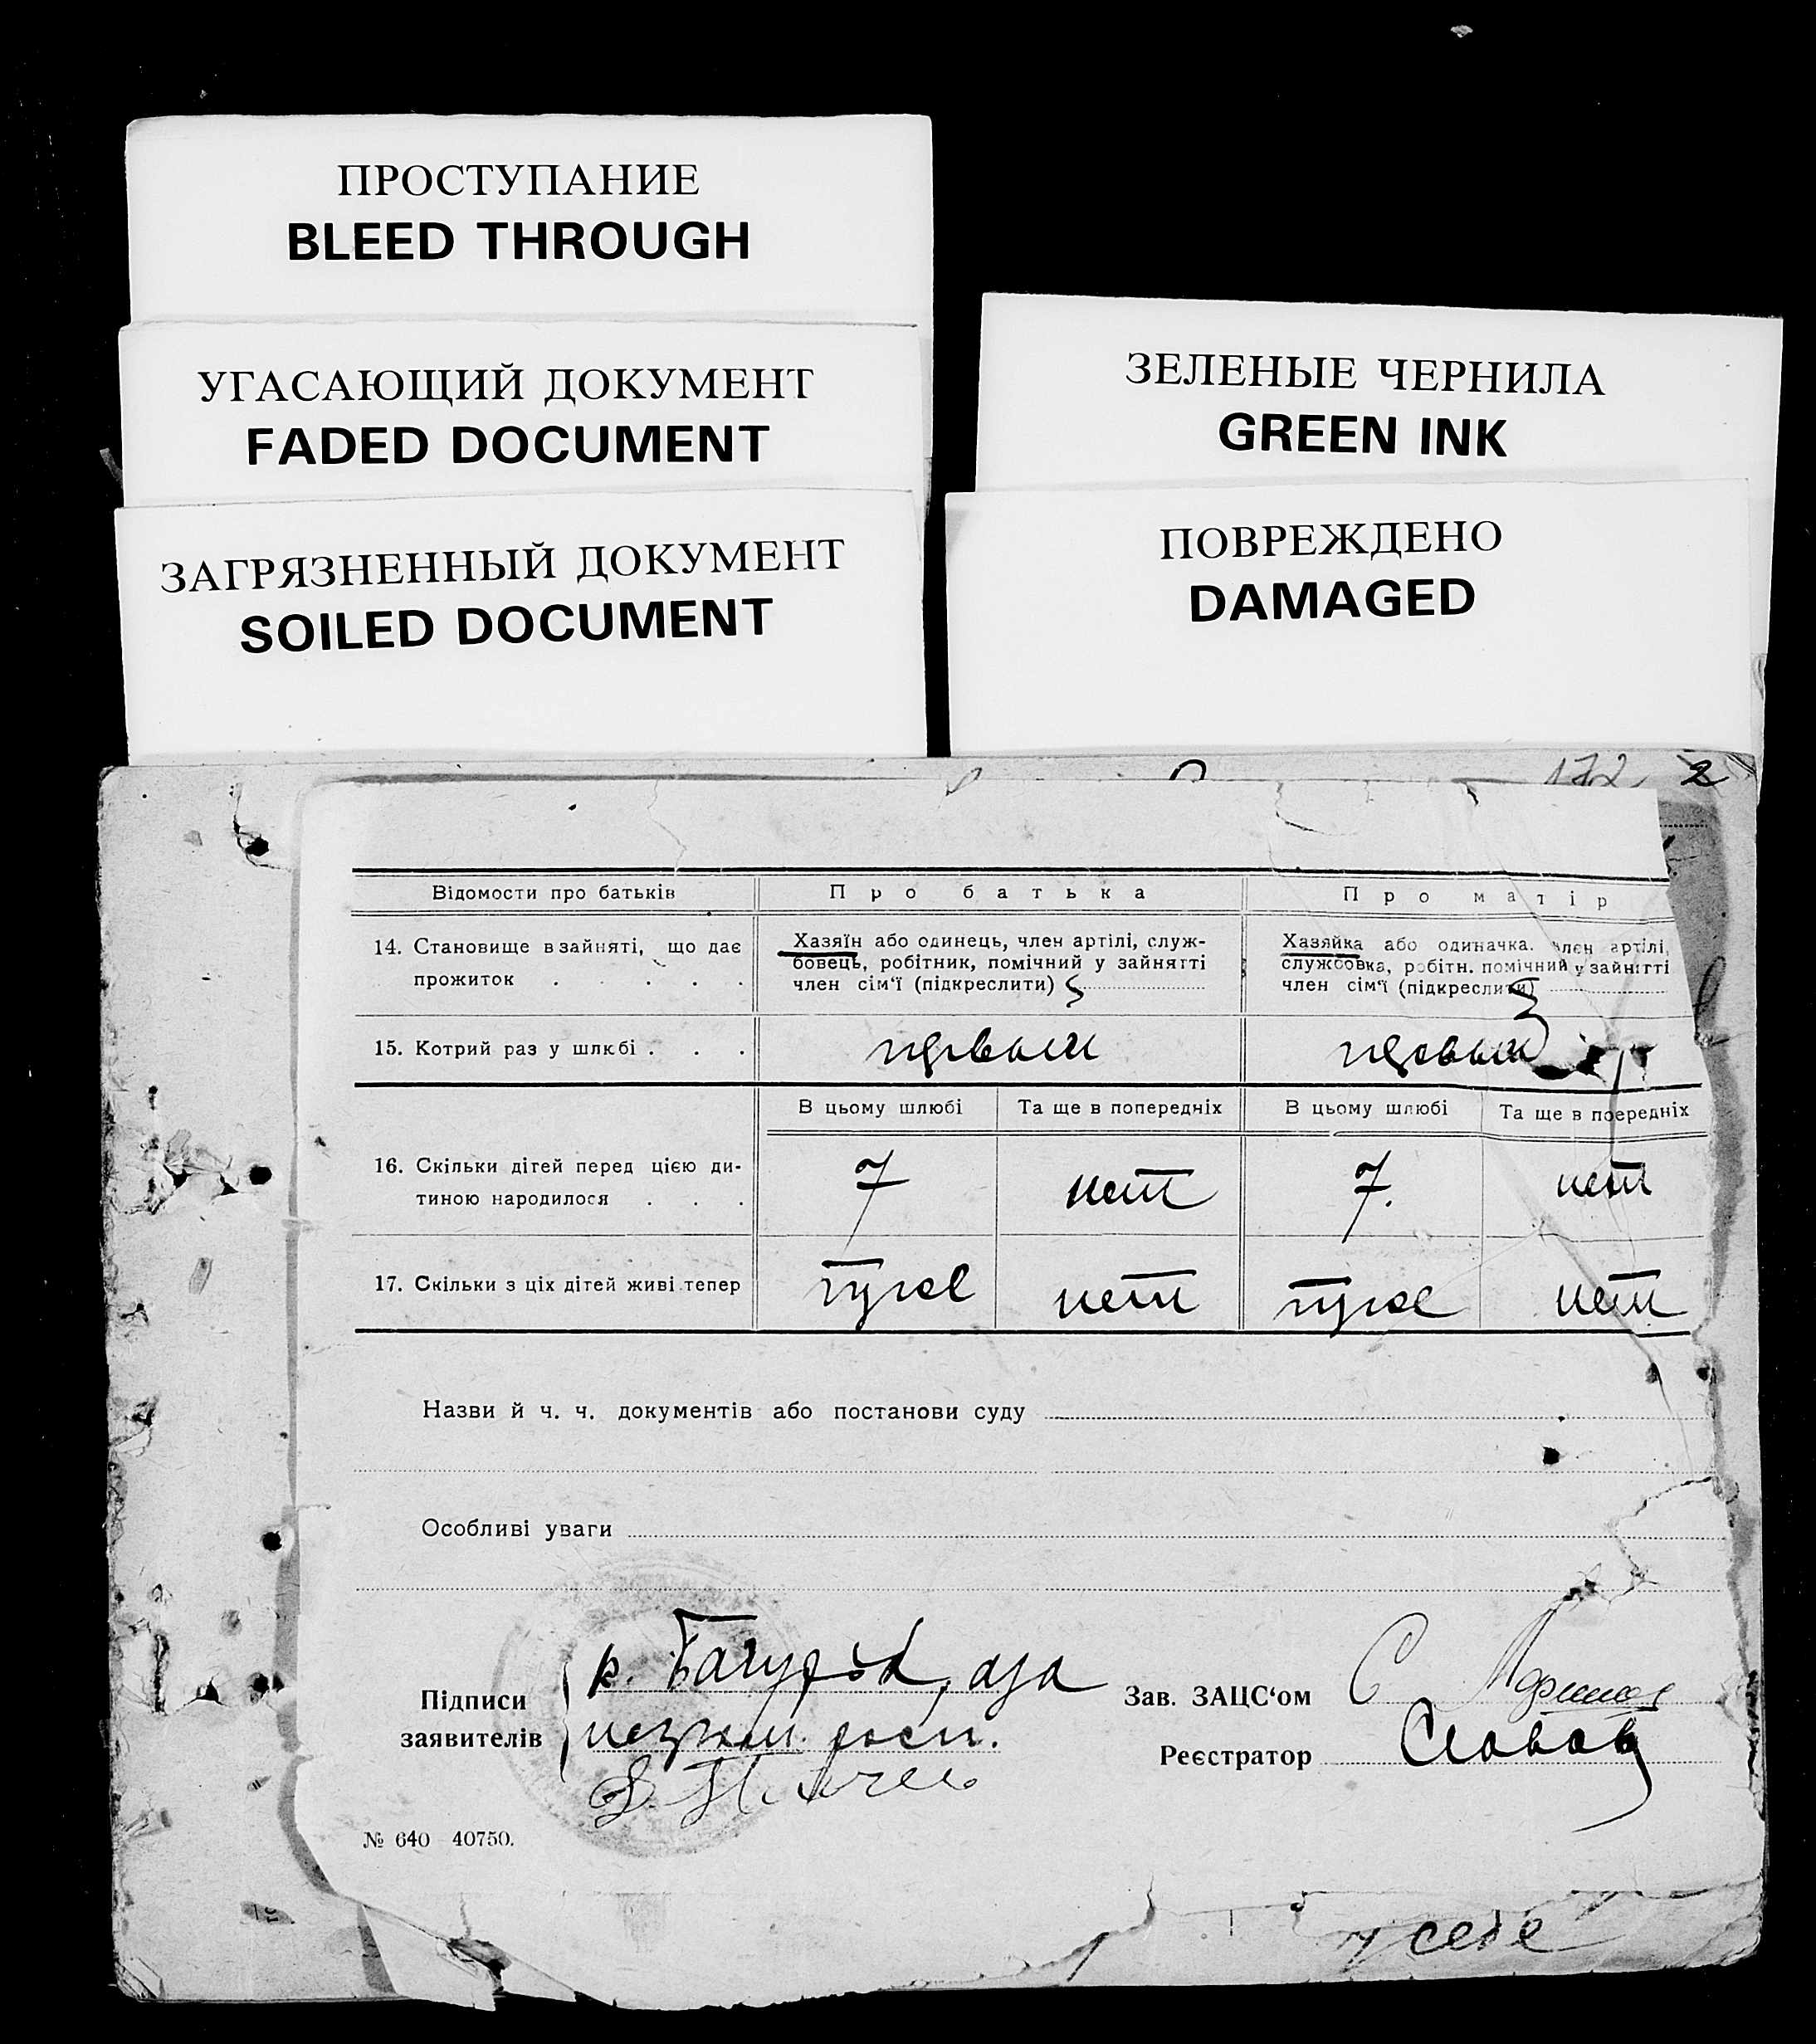 ПРОСТУПАНИЕ
BLEED THROUGH
УГАСАЮЩИЙ ДОКУМЕНТ
FADED DOCUMENT
ЗАГРЯЗНЕННЫЙ ДОКУМЕНТ
SOILED DOCUMENT
ЗЕЛЕНЫЕ ЧЕРНИЛА
GREEN INK
ПОВРЕЖДЕНО
DAMAGED
172 2
Відомости про батьків
Про батька
Про матір
14. Становище в зайняті, що дає
прожиток . . . . .
Хазяїн або одинець, член артілі, служ-
бовець, робітник, помічний у зайнятті
член сім'ї (підкреслити)
Хазяйка або одиначка. член артілі,
службовка, робітн. помічний у зайнятті
член сім'ї (підкреслити)
15. Котрий раз у шлюбі . . .
первый
первый
В цьому шлюбі
Та ще в попередніх
В цьому шлюбі
Та ще в поередніх
16. Скільки дітей перед цією ди-
тиною народилося . . .
7
нет
7.
нет
17. Скільки з ціх дітей живі тепер
нет
нет
Назви й ч. ч. документів або постанови суду
Особливі уваги
Підписи
заявителів
Зав. ЗАЦС'ом
Реєстратор
№ 640 40750.
себе